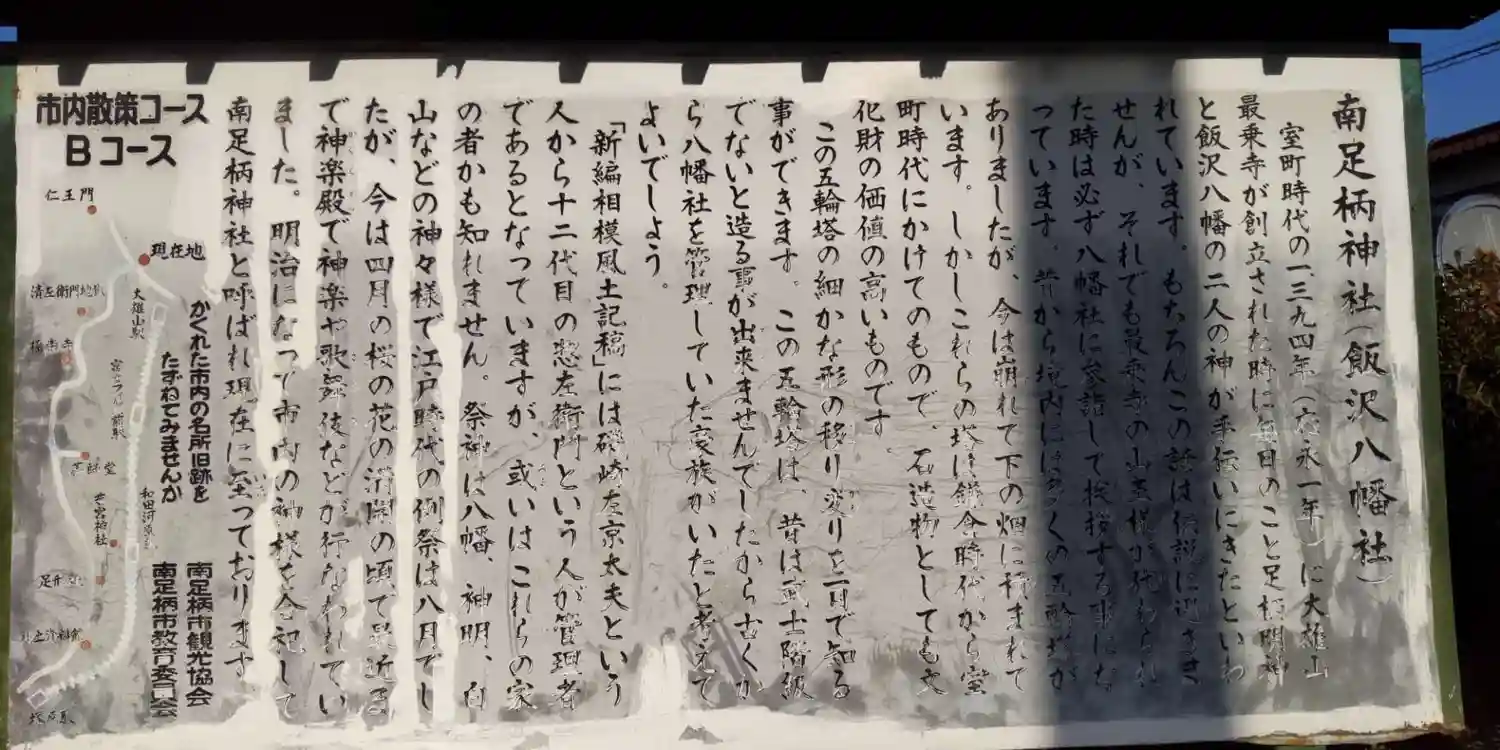 南足柄神社(飯沢八幡社)
室町時代の一三九四年(応永一年)に大雄山
最乗寺が創立された時に毎日のこと足柄明神
と飯沢八幡の二人の神が手伝いにきたといわ
れています。もちろんこの話は伝説に過ぎま
せんが、それでも最乗寺の山主様が代わられ
た時は必ず八幡社に参詣して挨拶する事にな
っています。昔から境内には多くの五輪塔が
ありましたが、今は崩れて下の畑に埋まれて
います。しかしこれらの塔は鎌倉時代から室
町時代にかけてのもので、石造物としても文
化財の価値の高いものです。
この五輪塔の細かな形の移り変りを一目で知る
事ができます。この五輪塔は、昔は武士階級
でないと造る事が出来ませんでしたから古くか
ら八幡社を管理していた豪族がいたと考えて
よいでしょう。
「新編相模風土記稿」には磯崎左京太夫という
人から十二代目の惣左衛門という人が管理者
であるとなっていますが、或いはこれらの家
の者かも知れません。祭神は八幡、神明、白
山などの神々様で江戸時代の例祭は八月でし
たが、今は四月の桜の花の満開の頃で最近ま
で神楽殿で神楽や歌舞伎などが行なわれてい
ました。明治になって市内の神様を合祀して
南足柄神社と呼ばれ現在に至っております
市内散策コース
Bコース
仁王門
現在地
清左衛門地獄
大雄山駅
和田河原駅
塚原駅
かくれた市内の名所旧跡を
たずねてみませんか
南足柄市観光協会
南足柄市教育委員会